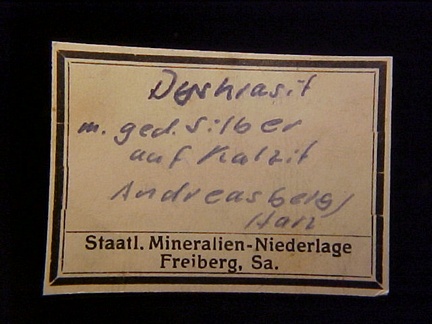 Dyskrasit
m. ged. Silber
auf Kalzit
Andreasberg/
Harz
Staatl. Mineralien-Niederlage
Freiberg, Sa.